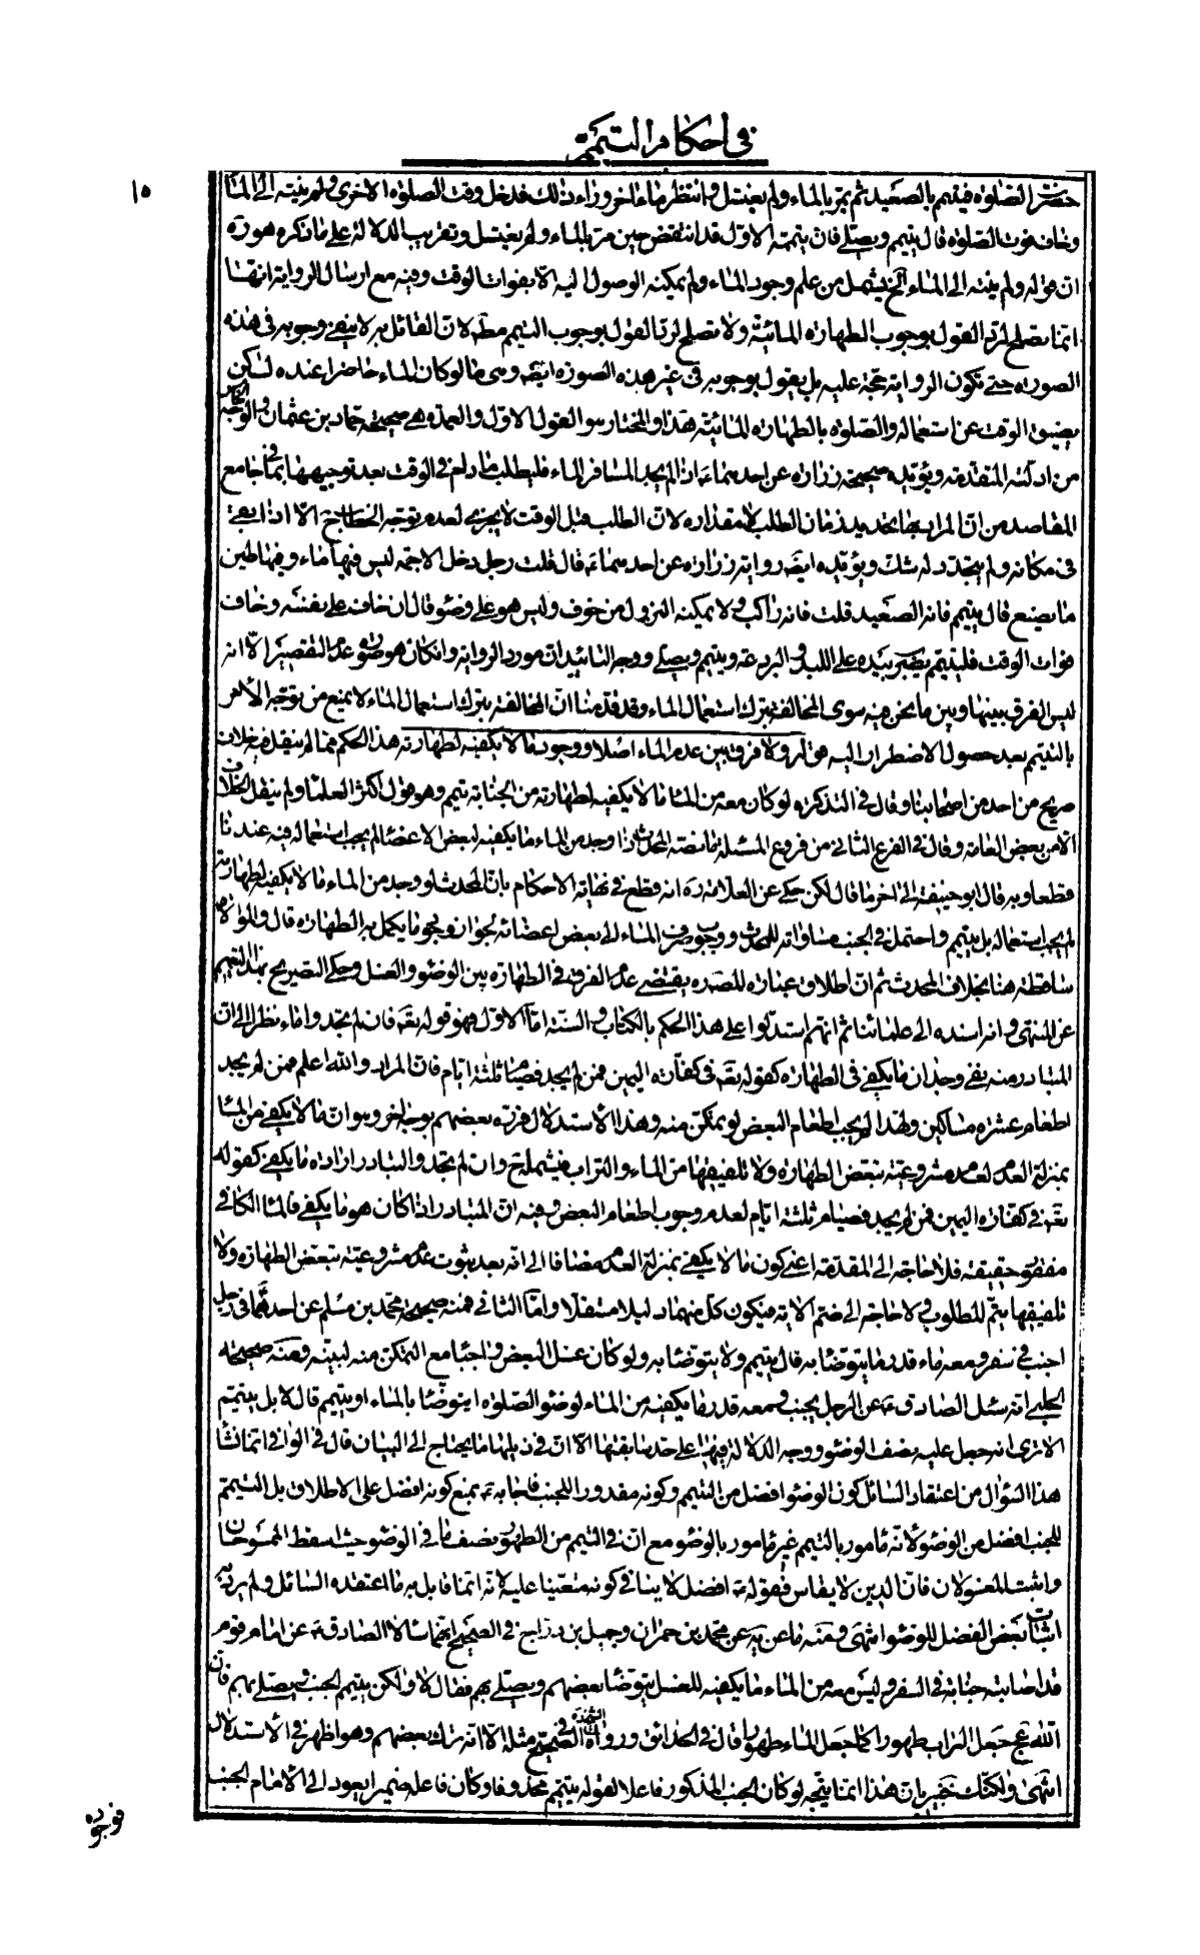 في احكام التيمم
١٥
حضرت الصلوة فيتيمم بالصعيد ثم يمر بالماء ولم يغتسل وانتظر ماء اخر وراء ذلك فدخل وقت الصلوة الاخرى ولم ينته الى الماء
وخاف فوت الصلوة قال يتيمم ويصلي فان تيممه الاول قد انتقض حين مر بالماء ولم يغتسل وتقريب الدلالة على ما ذكره هو ره
ان قوله ولم ينته الى الماء الخ يشمل من علم وجود الماء ولم يمكنه الوصول اليه الا بفوات الوقت وفيه مع ارسال الرواية انها
انما تصلح لرد القول بوجوب الطهارة المائية ولا تصلح لرد القول بوجوب التيمم مط لان القائل به لا ينفي وجوبه في هذه
الصورة حتى تكون الرواية حجة عليه بل يقول بوجوبه في غير هذه الصورة ايضا وهي ما لو كان الماء حاضرا عنده لكن
يضيق الوقت عن استعماله والصلوة بالطهارة المائية هذا والمختار هو القول الاول والعمدة هي صحيحة حماد بن عثمان والوجه الخامس
من ادلته المتقدمة ويؤيده صحيحة زرارة عن احدهما ع اذا لم يجد المسافر الماء فليطلب ما دام في الوقت بعد توجيهها بما في جامع
المقاصد من ان المراد بها تحديد زمان الطلب لا مقداره لان الطلب قبل الوقت لا يجزي لعدم توجه الخطاب ح الا اذا بقي
في مكانه ولم يتجدد له شك ويؤيده ايضا رواية زرارة عن احدهما ع قال قلت رجل دخل الاجمة ليس فيها ماء وفيها طين
ما يصنع قال يتيمم فانه الصعيد قلت فانه راكب ولا يمكنه النزول من خوف وليس هو على وضوء قال ان خاف على نفسه وخاف
فوات الوقت فليتيمم يضرب بيده على اللبد والبرذعة ويتيمم ويصلي ووجه التائيد ان مورد الرواية وان كان هو صورة عدم التقصير الا انه
ليس الفرق بينها وبين ما نحن فيه سوى المخالفة بترك استعمال الماء وقد قدمنا ان المخالفة بترك استعمال الماء لا يمنع من توجه الامر
بالتيمم بعد حصول الاضطرار اليه قوله ولا فرق بين عدم الماء اصلا ووجود ما لا يكفيه لطهارته هذا الحكم مما لم ينقل فيه خلاف
صريح من احد من اصحابنا وقال في التذكرة لو كان معه من الماء ما لا يكفيه لطهارته من الجنابة تيمم وهو قول اكثر العلماء ولم ينقل الخلاف
الا من بعض العامة وقال في الفرع الثاني من فروع المسئلة ما نصه المحدث اذا وجد من الماء ما يكفيه لبعض الاعضاء لم يجب استعماله فيه عندنا
قطعا وبه قال ابو حنيفة الى اخر ما قال لكن حكي عن العلامة ره انه قطع في نهاية الاحكام بان المحدث لو وجد من الماء ما لا يكفيه لطهارته
لم يجب استعماله بل يتيمم واحتمل في الجنب مساواته للمحدث ووجوب صرف الماء الى بعض اعضائه لجواز وجود ما يكمل به الطهارة قال والموالاة
ساقطة هنا بخلاف المحدث ثم ان اطلاق عبارة المصنف ره يقتضي عدم الفرق في الطهارة بين الوضوء والغسل وحكى التصريح بهذا التعميم
عن المنتهى وانه اسنده الى علمائنا ثم انهم استدلوا على هذا الحكم بالكتاب والسنة اما الاول فهو قوله تعه فان لم تجدوا ماء نظرا الى ان
المتبادر منه نفي وجدان ما يكفي في الطهارة كقوله تعه في كفارة اليمين فمن لم يجد فصيام ثلثة ايام فان المراد والله اعلم فمن لم يجد
اطعام عشرة مساكين ولهذا لم يجب اطعام البعض لو تمكن منه وهذا الاستدلال قرره بعضهم بوجه اخر وهو ان ما لا يكفي من الماء
بمنزلة العدم لعدم مشروعية تبعض الطهارة ولا تلفيقها من الماء والتراب فيشمله ح وان لم تجدوا والمتبادر ارادة ما يكفي كقوله
تعه في كفارة اليمين فمن لم يجد فصيام ثلثة ايام لعدم وجوب اطعام البعض وفيه ان المتبادر اذا كان هو ما يكفي فالماء الكافي
مفقود حقيقة فلا حاجة الى المقدمة اعني كون ما لا يكفي بمنزلة العدم مضافا الى انه بعد ثبوت عدم مشروعية تبعض الطهارة ولا
تلفيقها يتم المطلوب ولا حاجة الى ضم الاية فيكون كل منهما دليلا مستقلا واما الثاني فمنه صحيحة محمد بن مسلم عن احدهما ع في رجل
اجنب في سفر ومعه ماء قدر ما يتوضأ به قال يتيمم ولا يتوضأ به ولو كان غسل البعض واجبا مع التمكن منه لبينه ومنه صحيحة
الحلبي انه سئل الصادق ع عن الرجل يجنب ومعه قدر ما يكفيه من الماء لوضوء الصلوة ايتوضأ بالماء او يتيمم قال لا بل يتيمم
الا ترى انه جعل عليه نصف الوضوء ووجه الدلالة فيها على حد سابقتها الا ان في ذيلها ما يحتاج الى البيان قال في الوافي انما نشأ
هذا السؤال من اعتقاد السائل كون الوضوء افضل من التيمم وكونه مقدورا للجنب فاجابه ع بمنع كونه افضل على الاطلاق بل التيمم
للجنب افضل من الوضوء لانه مأمور بالتيمم غير مأمور بالوضوء مع ان في التيمم من الطهور نصف ما في الوضوء حيث اسقط الممسوحان
واثبت المغسولان فان الدين لا يقاس فقوله ع افضل لا ينافي كونه متعينا عليه لانه انما قابل به ما اعتقده السائل ولم يرد به
اثبات بعض الفضل للوضوء انتهى ومنه ما عن يه عن محمد بن حمران وجميل بن دراج في الصحيح انهما سالا الصادق ع عن امام قوم
قد اصابته جنابة في السفر وليس معه من الماء ما يكفيه للغسل يتوضأ بعضهم ويصلي بهم فقال لا ولكن يتيمم الجنب ويصلي بهم فان
الله عج جعل التراب طهورا كما جعل الماء طهورا قال في الحدائق ورواه الشيخ في الصحيح مثله الا انه ترك بعضهم وهو اظهر في الاستدلال
انتهى ولكنك خبير بان هذا انما يتجه لو كان الجنب المذكور فاعلا لقوله يتيمم محذوفا وكان فاعله ضميرا يعود الى الامام الجنب
فوجوده